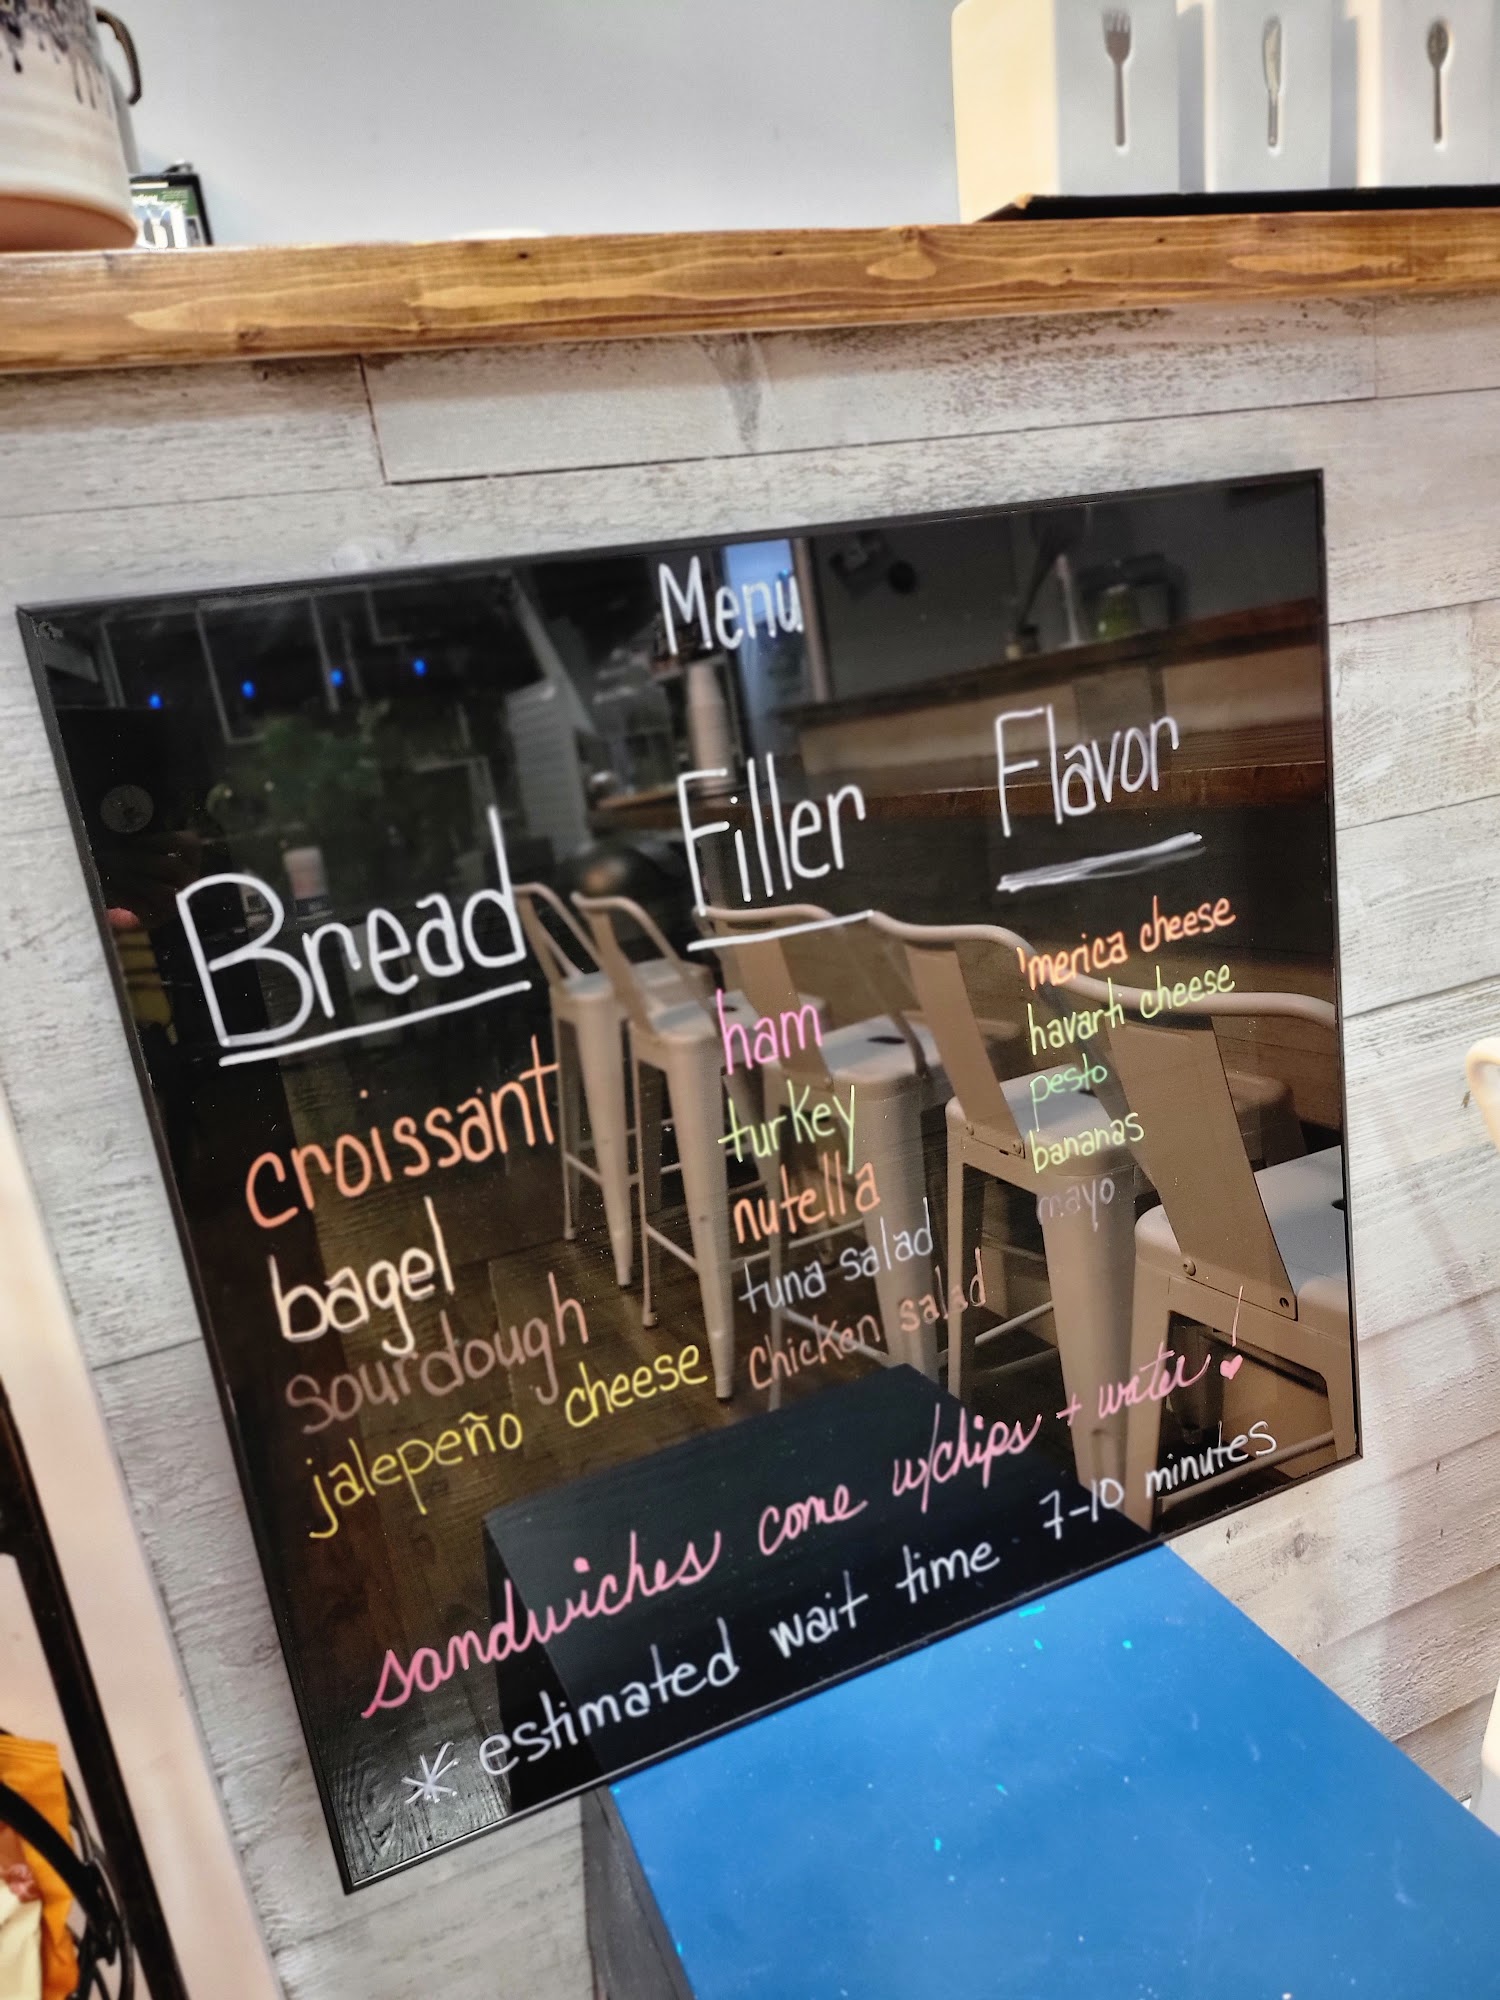 Menu
Bread
croissant
bagel
sourdough
jalepeño cheese
Filler
ham
turkey
nutella
tuna salad
chicken salad
Flavor
'merica cheese
havarti cheese
pesto
bananas
mayo
sandwiches come w/chips + water! ♥
* estimated wait time 7-10 minutes